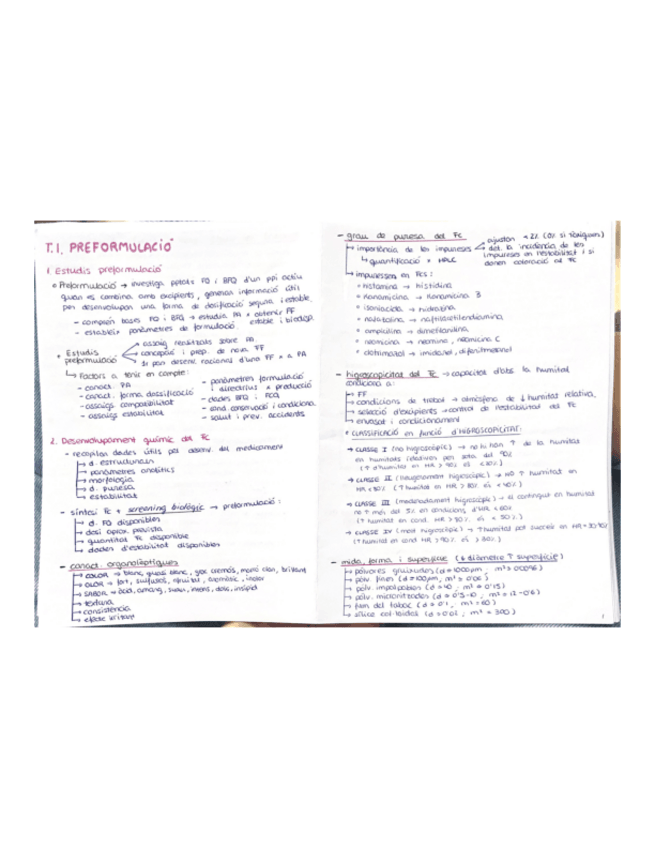 T.1. PREFORMULACIÓ
1. Estudis preformulació
Preformulació → investiga pptats FQ i BFQ d'un ppi actiu
quan es combina amb excipients, generar informació útil
per desenvolupar una forma de dosificació segura, estable,
estable i biodisp.
- comprèn bases FQ i BFQ → estudia PA x obtenir FF
- estableix paràmetres de formulació
Estudis preformulació
assaig realitzats sobre PA
concepció i prep. de nova FF
desenv. racional d'una FF x a PA
↳ Factors a tenir en compte:
- caract. PA
- caract. forma dosificació
- assaigs compatibilitat
- assaigs estabilitat
- paràmetres formulació
i directrius x producció
- dades BFQ i FCQ
- cond conservació i condiciona.
- salut i prev. accidents.
2. Desenvolupament químic del Fc
- recopilar dades útils pel disseny del medicament
↳ d. estructurals
→ paràmetres analítics
→ morfologia
→ d. puresa
↳ estabilitat
- síntesi Fc + screening biològic → preformulació:
→ d. FQ disponibles
→ dosi aprox. prevista
→ quantitat Fc disponible
↳ dades d'estabilitat disponibles
- caract. organolèptiques
→ COLOR → blanc, quasi blanc, groc cremós, marró clar, brillant
→ OLOR → fort, sulfurós, afruitat, aromàtic, inolor
→ SABOR → àcid, amarg, suau, intens, dolç, insípid
→ textura
→ consistència
↳ efecte irritant
- grau de puresa del Fc
→ importància de les impureses
ajusten < 2% (0% si tòxiques)
det. la incidència de les
impureses en l'estabilitat i si
donen coloració al Fc
↳ quantificació x HPLC
↳ impureses en Fcs:
histamina → histidina
kanamicina → kanamicina B
isoniacida → hidracina
nafazolina → naftilacetilendiamina
ampicilina → dimetilanilina
neomicina → neamina, neomicina C
clotrimazol → imidazol, difenilmetanol
- higroscopicitat del Fc → capacitat d'abs. la humitat
condiciona a:
→ FF
→ condicions de treball → atmosfera de ↓ humitat relativa.
→ selecció d'excipients → control de l'estabilitat del Fc
↳ envasat i condicionament
CLASSIFICACIÓ en funció d'HIGROSCOPICITAT:
→ CLASSE I (no higroscòpic) → no hi han ↑ de la humitat
en humitats relatives per sota del 90%
→ CLASSE II (lleugerament higroscòpic) → NO ↑ humitat en
HR < 80% (↑ humitat en HR > 80% és < 40%)
→ CLASSE III (moderadament higroscòpic) → el contingut en humitat
no ↑ més del 5% en condicions d'HR < 60%
→ CLASSE IV (molt higroscòpic) → ↑ humitat pot succeir en HR
- mida, forma i superfície (↓ diàmetre ↑ superfície)
→ pólvores gruixudes (d = 1000µm,
→ pólv. fines (d = 100µm, m² = 0'06)
→ pólv. impalpables (d = 40, m² = 0'15)
→ pólv. micronitzades
→ fum del tabac (d = 0'1, m² = 60)
↳ sílice col·loidal (d = 0'01, m² = 300)
1